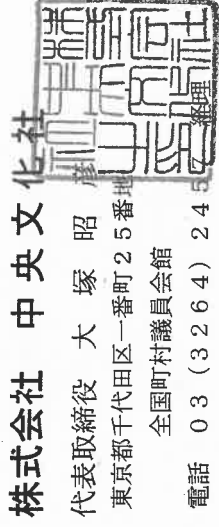 株式会社 中央文化社
代表取締役 大塚昭彦
東京都千代田区一番町25番地
全国町村議員会館
電話 03(3264)245